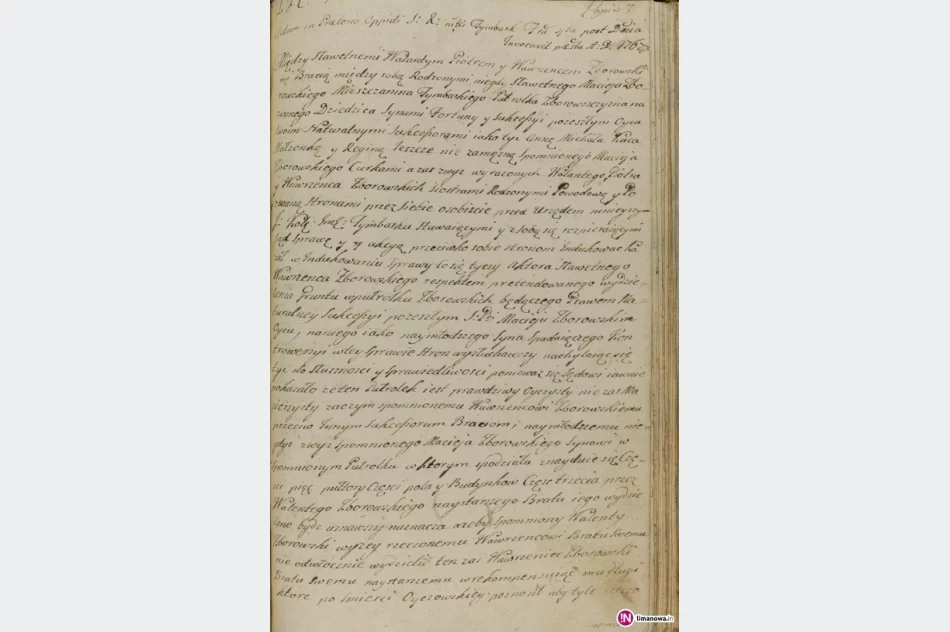 Actum in Prætorio Oppidi S: R: Mtis Tymbark post Dnicā
Invocavit
Między Sławetnemi Walantym Piotrem y Wawrzencem Zborowski
mi Bracią między sobą Rodzonymi niegdy Sławetnego Macieja Zbo
rowskiego Mieszczanina Tymbarskiego Pułrolka Zborowszczyzna na
zwanego Dziedzica Synami Fortuny y Sukcessyi pozostałymi Oycu
swoim Naturalnymi Sukcessorami iako tyż Annę Michała
Małżonkę y Reginę Jeszcze nie zamęzną spomnionego Macieja
Zborowskiego Curkami a zaś zwyz wyrażonych Walantego Piotra
y Wawrzenca Zborowskich Siostrami Rodzonymi Powodową y Po
zwaną Stronami przez siebie osobiscie przed Urzędem ninieyszym
Tymbarku Stawaiącymi y z sobą się rozpieraiącymi
Sąd Sprawę y akcyą przeciwko sobie stronom Indukować ka
zał w Indukowaniu Sprawy co się tyczy Aktora Sławetnego
Wawrzenca Zborowskiego respektem pretendowanego wydzie
lenia Gruntu w pułrolku Zborowskich będącego Prawem Na
turalney Sukcessyi pozostałym Macieju Zborowskim
Oycu, na niego iako naymłodszego Syna Spadaiącego Kon
trowersyi w tey Sprawie Stron wysłuchawszy nachylaiąc się
tyż do Słuszności y Sprawiedliwości ponieważ się Sądowi iawnie
pokazało ze ten Pułrolek iest prawdziwy Oyczysty nie zaś Ma
cierzysty zaczym spomnionemu Wawrzencowi Zborowskiemu
przeciw Innym Sukcessorom Braciom, naymłodszemu nie
gdyś zwyz spomnionego Macieja Zborowskiego Synowi w
spomnionym Pułrolku w ktorym spodziała znayduie się Czę
ści pięć pułtory Części pola y Budynkow Część trzecia przez
Walentego Zborowskiego naystarszego Brata iego wydzie
lone bydz uznawszy naznacza ażeby spomniony Walenty
Zborowski wyzey rzeczonemu Wawrzencowi Bratu swemu
nie odwłocznie wydzielił ten zaś Wawrzeniec Zborowski
Bratu swemu naystarszemu w rekompensacyą długi
ktore po śmierci Oycowskiey ponosił aby tyle
limanowa.in